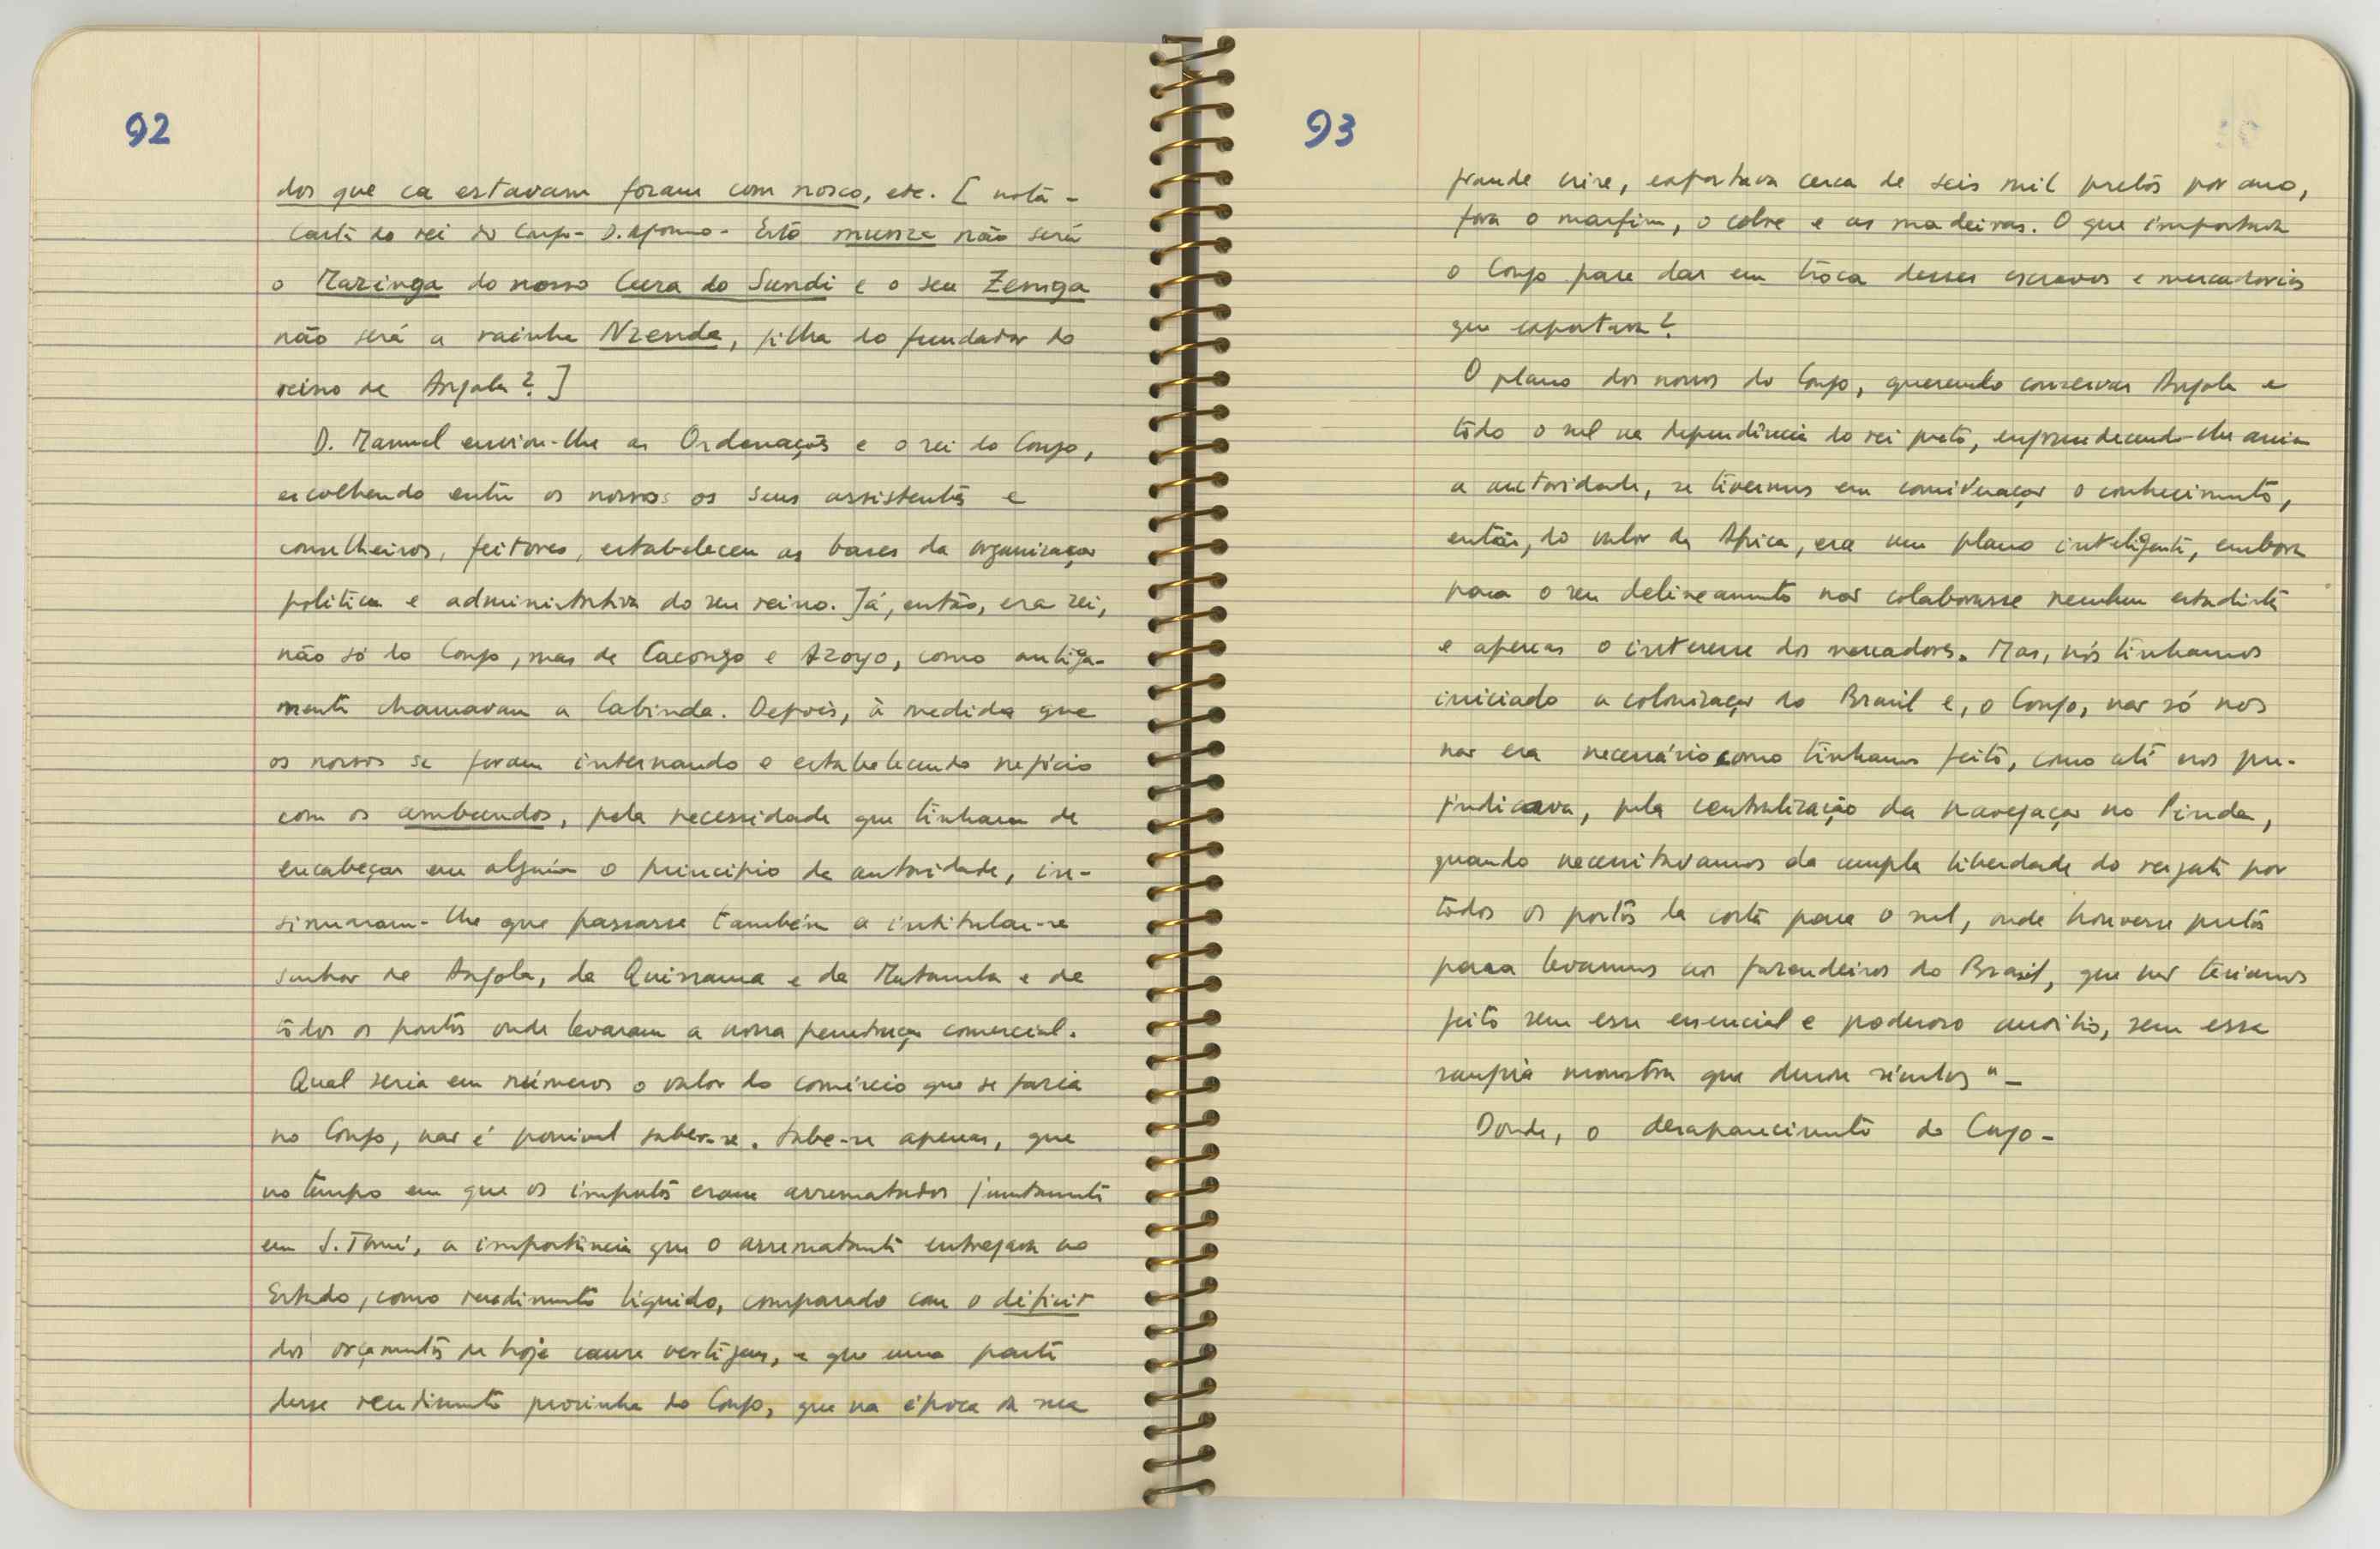 92
dos que ca estavam foram com nosco, etc. [ nota -
carta do rei do Congo - D. Afonso - Este munza não será
o Mazinga do nosso Cura do Sundi e o seu Zenga
não será a rainha Nzenda, filha do fundador do
reino de Angola? ]
D. Manuel enviou-lhe as Ordenações e o rei do Congo,
escolhendo entre os nossos os seus assistentes e
conselheiros, feitores, estabeleceu as bases da organização
politica e administrativa do seu reino. Já, então, era rei,
não só do Congo, mas de Cacongo e Azoyo, como antiga-
mente chamavam a Cabinda. Depois, à medida que
os nossos se foram internando e estabelecendo negócio
com os ambundos, pela necessidade que tinham de
encabeçar em alguém o principio de autoridade, in-
sinuaram-lhe que passasse também a intitular-se
senhor de Angola, da Quissama e da Matamba e de
todos os pontos onde levaram a nossa penetração comercial.
Qual seria em números o valor do comércio que se fazia
no Congo, não é possivel saber-se. Sabe-se apenas, que
no tempo em que os impostos eram arrematados juntamente
em S. Tomé, a importância que o arrematante entregava ao
Estado, como rendimento liquido, comparado com o déficit
dos orçamentos de hoje causa vertigens, e que uma parte
desse rendimento provinha do Congo, que na época da sua
93
grande crise, exportava cerca de seis mil pretos por ano,
fora o marfim, o cobre e as madeiras. O que importava
o Congo para dar em troca desses escravos e mercadorias
que exportava?
O plano dos nossos do Congo, querendo conservar Angola e
todo o sul na dependência do rei preto, engrandecendo-lhe assim
a autoridade, se tivermos em consideração o conhecimento,
então, do valor da Africa, era um plano inteligente, embora
para o seu delineamento não colaborasse nenhum estadista
e apenas o interesse dos mercadores. Mas, nós tinhamos
iniciado a colonização do Brasil e, o Congo, não só nos
não era necessário como tinhamos feito, como até nos pre-
judicava, pela centralização da navegação no Pinda,
quando necessitavamos da ampla liberdade do resgate por
todos os portos da costa para o sul, onde houvesse pretos
para levarmos aos fazendeiros do Brasil, que não teriamos
feito sem esse essencial e poderoso auxilio, sem essa
sangria monstra que durou séculos" -
Donde, o desaparecimento do Congo -